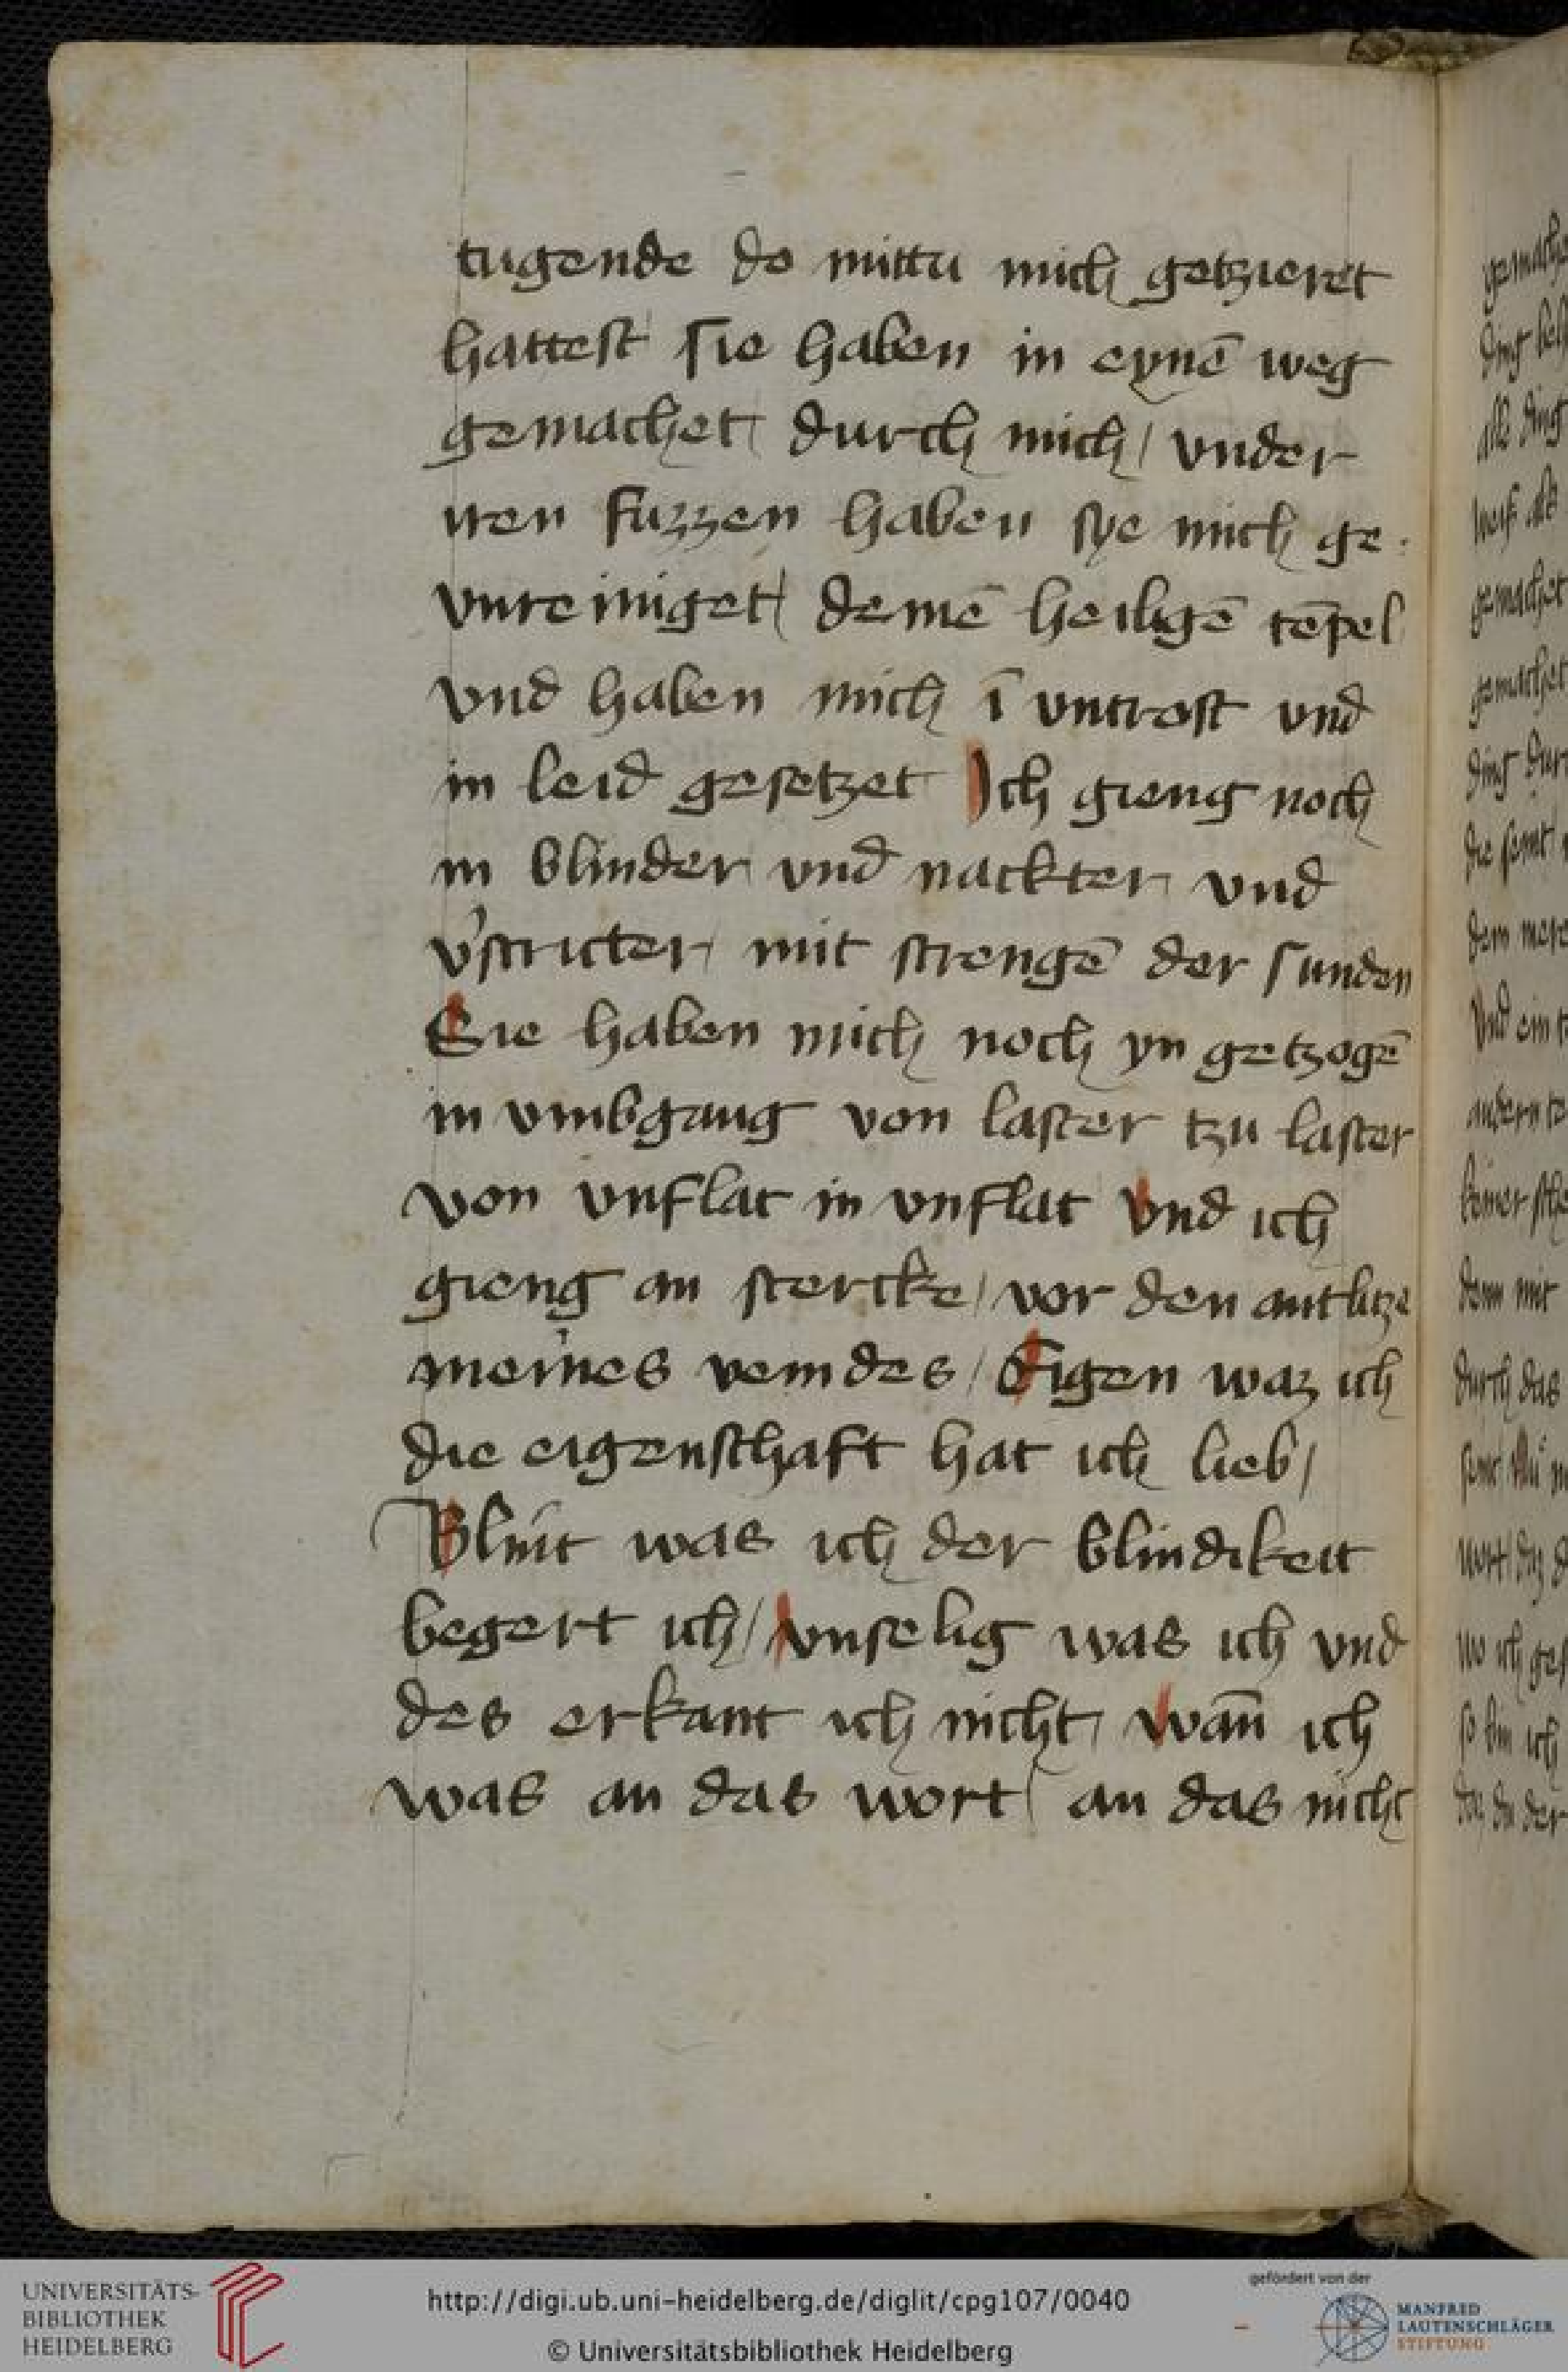 tugende do mittu mich getzieret
hattest sie haben in eynē weg
gemachet durch mich / vnder
iren fuzzen haben sye mich ge
vnreiniget / deinē heiligē tēpel
vnd haben mich ī vntrost vnd
in leid gesetzet Ich gieng noch
in blinder vnd nackter vnd
v'stricter mit strengē der sunden
Sie haben mich noch yn getzogē
in vmbgang von laster tzu laster
von vnflat in vnflat vnd ich
gieng an stercke / vor den antlitze
meines veindes / Eigen waz ich
die eigenschaft hat ich lieb /
Blint was ich der blindikeit
begert ich / vnselig was ich vnd
des erkant ich nicht wañ ich
was an das wort / an das nicht
gemachet
alle ding
gemachet
gemachet
ding dur
vnd ein
durch das
so bin ich
UNIVERSITÄTS-
BIBLIOTHEK
HEIDELBERG
http://digi.ub.uni-heidelberg.de/diglit/cpg107/0040
© Universitätsbibliothek Heidelberg
gefördert von der
MANFRED
LAUTENSCHLÄGER
STIFTUNG